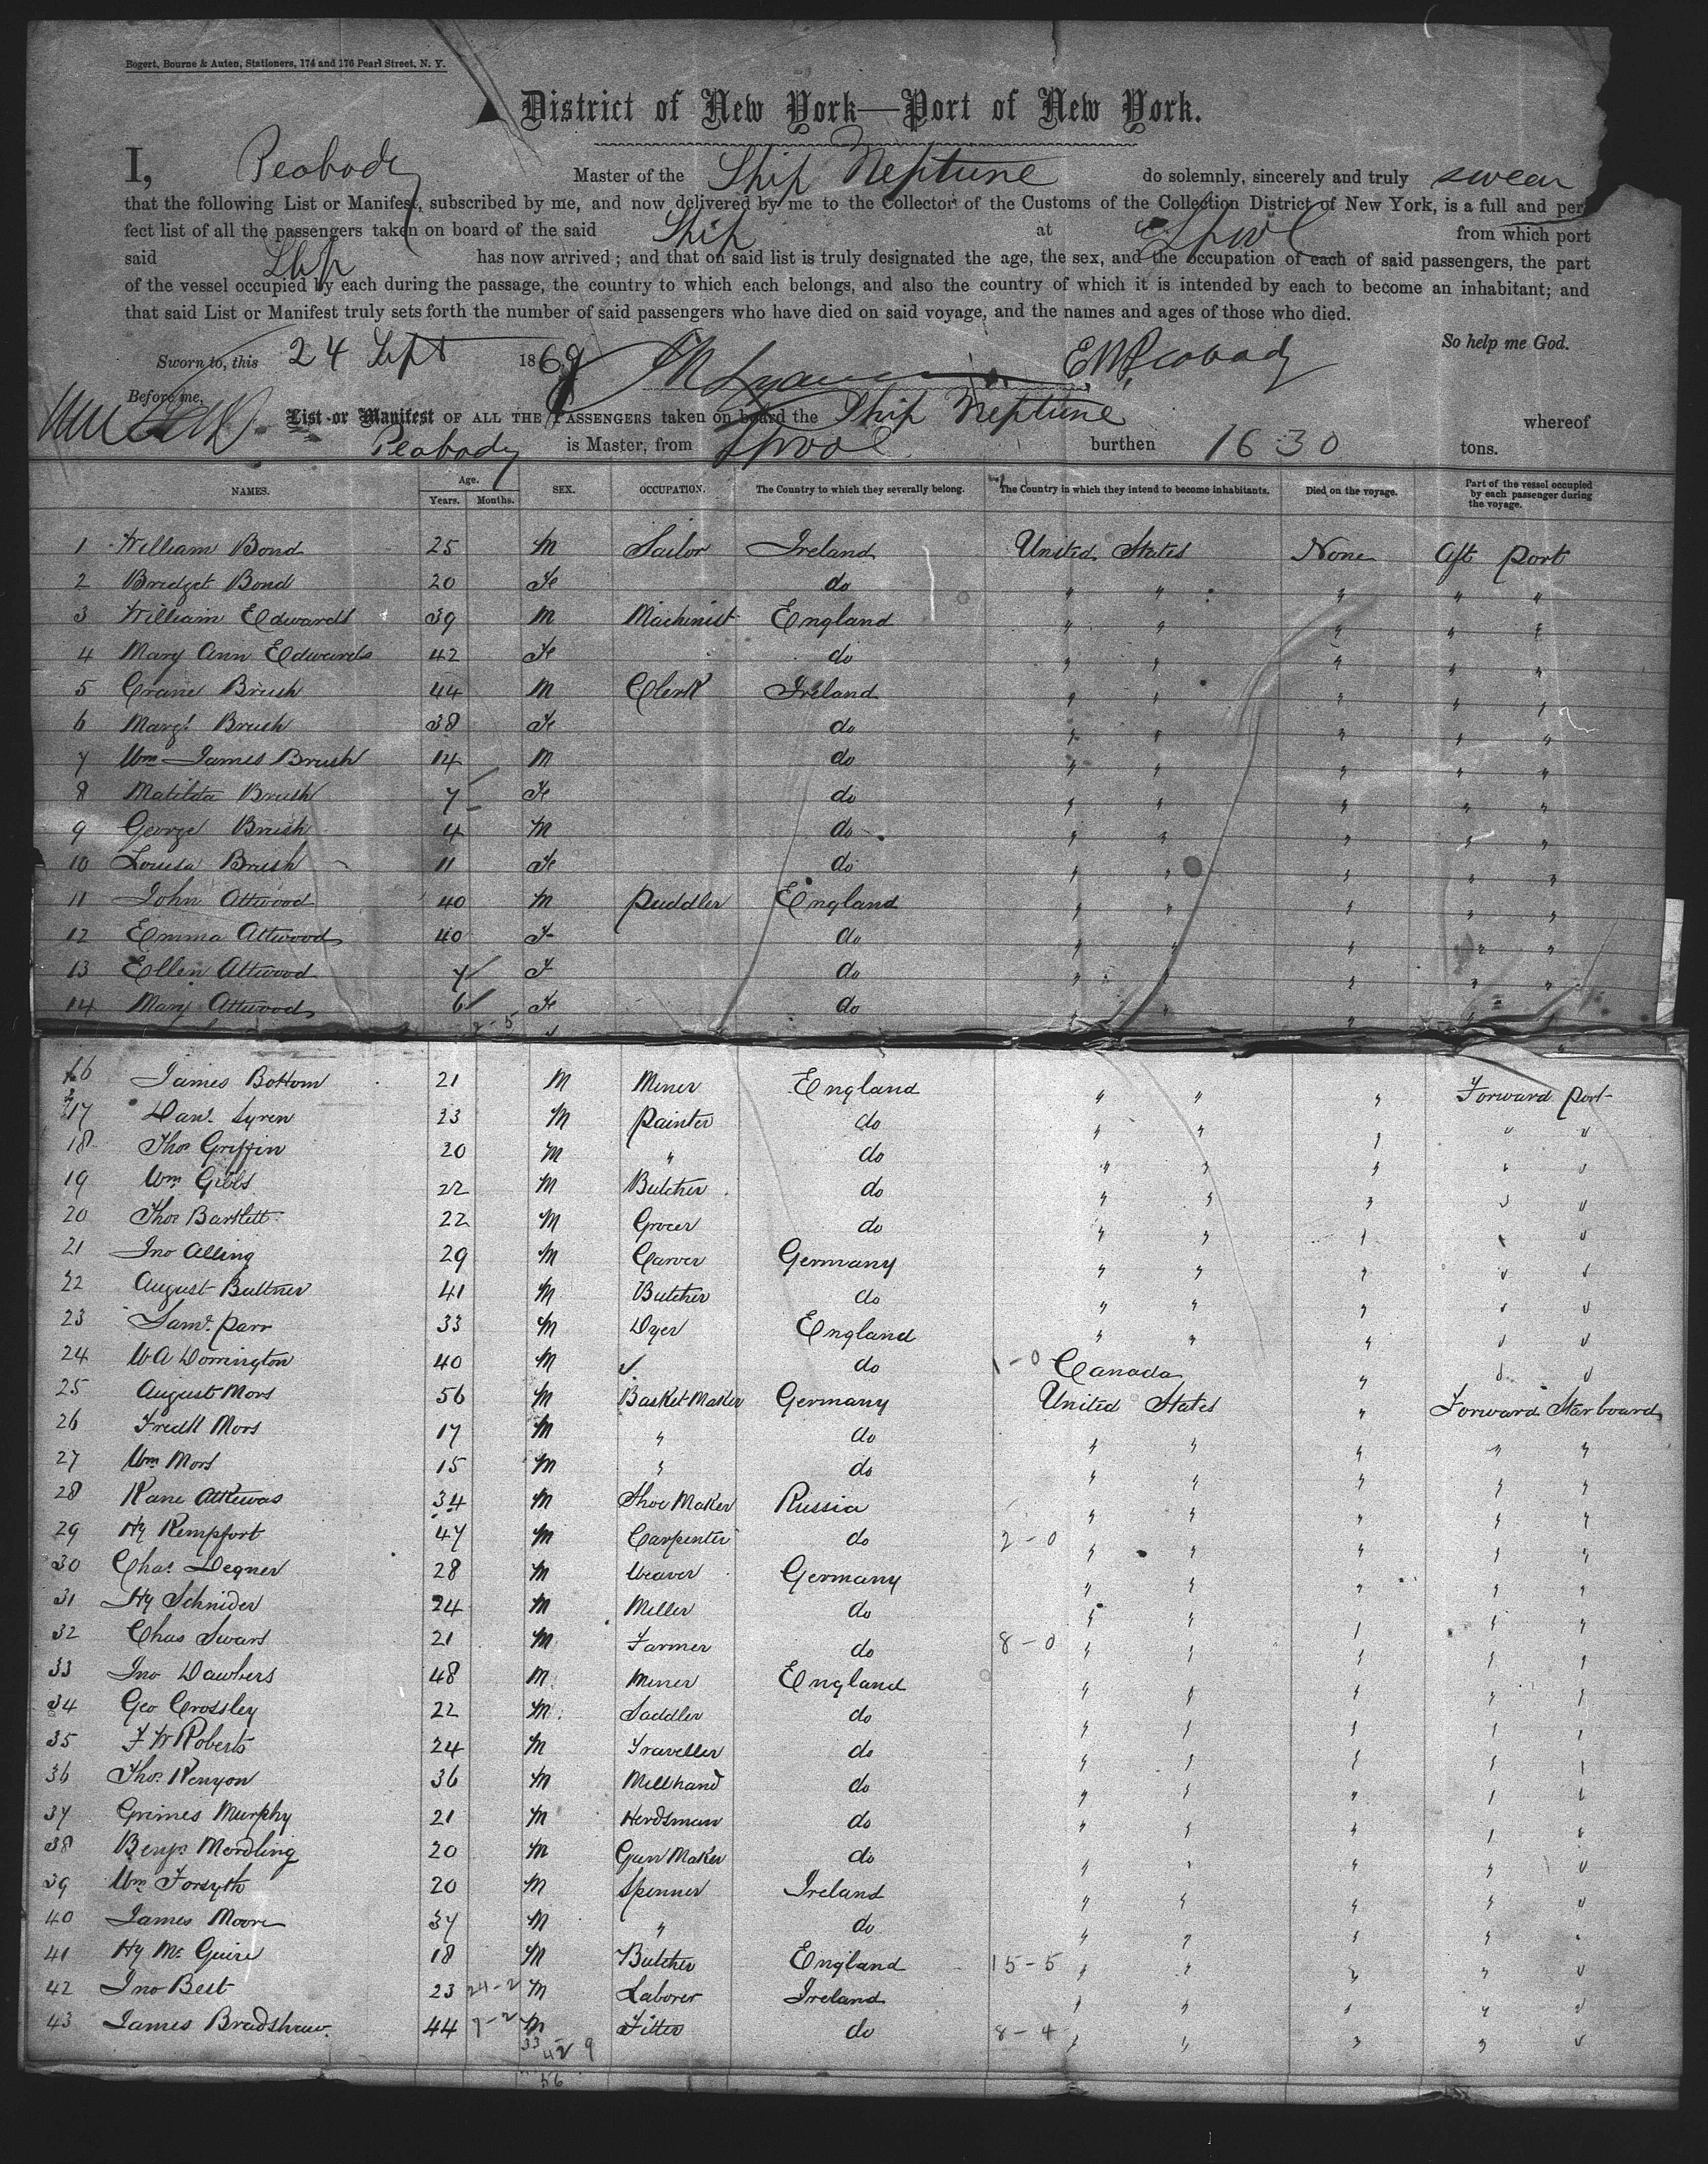 Bogert, Bourne & Auten, Stationers, 174 and 176 Pearl Street, N. Y.
District of New York—Port of New York.
I, Peabody Master of the Ship Neptune do solemnly, sincerely and truly swear
that the following List or Manifest, subscribed by me, and now delivered by me to the Collector of the Customs of the Collection District of New York, is a full and per
fect list of all the passengers taken on board of the said Ship at Lpool from which port
said Ship has now arrived; and that on said list is truly designated the age, the sex, and the occupation of each of said passengers, the part
of the vessel occupied by each during the passage, the country to which each belongs, and also the country of which it is intended by each to become an inhabitant; and
that said List or Manifest truly sets forth the number of said passengers who have died on said voyage, and the names and ages of those who died.
So help me God.
Sworn to, this 24 Sept 1869 E M Peabody
Before me,
List or Manifest OF ALL THE PASSENGERS taken on board the Ship Neptune whereof
Peabody is Master, from Lpool burthen 1630 tons.
NAMES. Age. Years. Months. SEX. OCCUPATION. The Country to which they severally belong. The Country in which they intend to become inhabitants. Died on the voyage. Part of the vessel occupied by each passenger during the voyage.
1 William Bond 25 M Sailor Ireland United States None Aft Port
2 Bridget Bond 20 Fe do " " " " "
3 William Edwards 39 M Machinist England " " " " "
4 Mary Ann Edwards 42 Fe do " " " " "
5 Crane Brush 44 M Clerk Ireland " " " " "
6 Margt Brush 38 Fe do " " " " "
7 Wm James Brush 14 M do " " " " "
8 Matilda Brush 7 Fe do " " " " "
9 George Brush 4 M do " " " " "
10 Louisa Brush 11 Fe do " " " " "
11 John Attwood 40 M Puddler England " " " " "
12 Emma Attwood 40 F do " " " " "
13 Ellen Attwood 7 F do " " " " "
14 Mary Attwood 6 Fe do " " " " "
2-5
16 James Bottom 21 M Miner England " " " Forward Port
17 Danl Syren 23 M Painter do " " " " "
18 Thos Griffin 20 M " do " " " " "
19 Wm Gibbs 22 M Butcher do " " " " "
20 Thos Bartlett 22 M Grocer do " " " " "
21 Jno Alling 29 M Carver Germany " " " " "
22 August Bultner 41 M Butcher do " " " " "
23 Saml Parr 33 M Dyer England " " " " "
24 W A Dorrington 40 M " do 1-0 Canada " " "
25 August Mors 56 M Basket Maker Germany United States " Forward Starboard
26 Fredk Mors 17 M " do " " " " "
27 Wm Mors 15 M " do " " " " "
28 Kane Atkewas 34 M Shoe Maker Russia " " " " "
29 Hy Kempfort 47 M Carpenter do 2-0 " " " " "
30 Chas Degner 28 M Weaver Germany " " " " "
31 Hy Schnider 24 M Miller do " " " " "
32 Chas Swars 21 M Farmer do 8-0 " " " " "
33 Jno Dawbers 48 M Miner England " " " " "
34 Geo Crossley 22 M Saddler do " " " " "
35 F W Roberts 24 M Traveller do " " " " "
36 Thos Kenyon 36 M Millhand do " " " " "
37 Grimes Murphy 21 M Herdsman do " " " " "
38 Benjn Mordling 20 M Gun Maker do " " " " "
39 Wm Forsyth 20 M Spinner Ireland " " " " "
40 James Moore 37 M " do " " " " "
41 Hy McGuire 18 M Butcher England 15-5 " " " " "
42 Jno Best 23 24-2 M Laborer Ireland " " " " "
43 James Bradshaw 44 7-2 M Fitter do 8-4 " " " " "
33 42 9
56